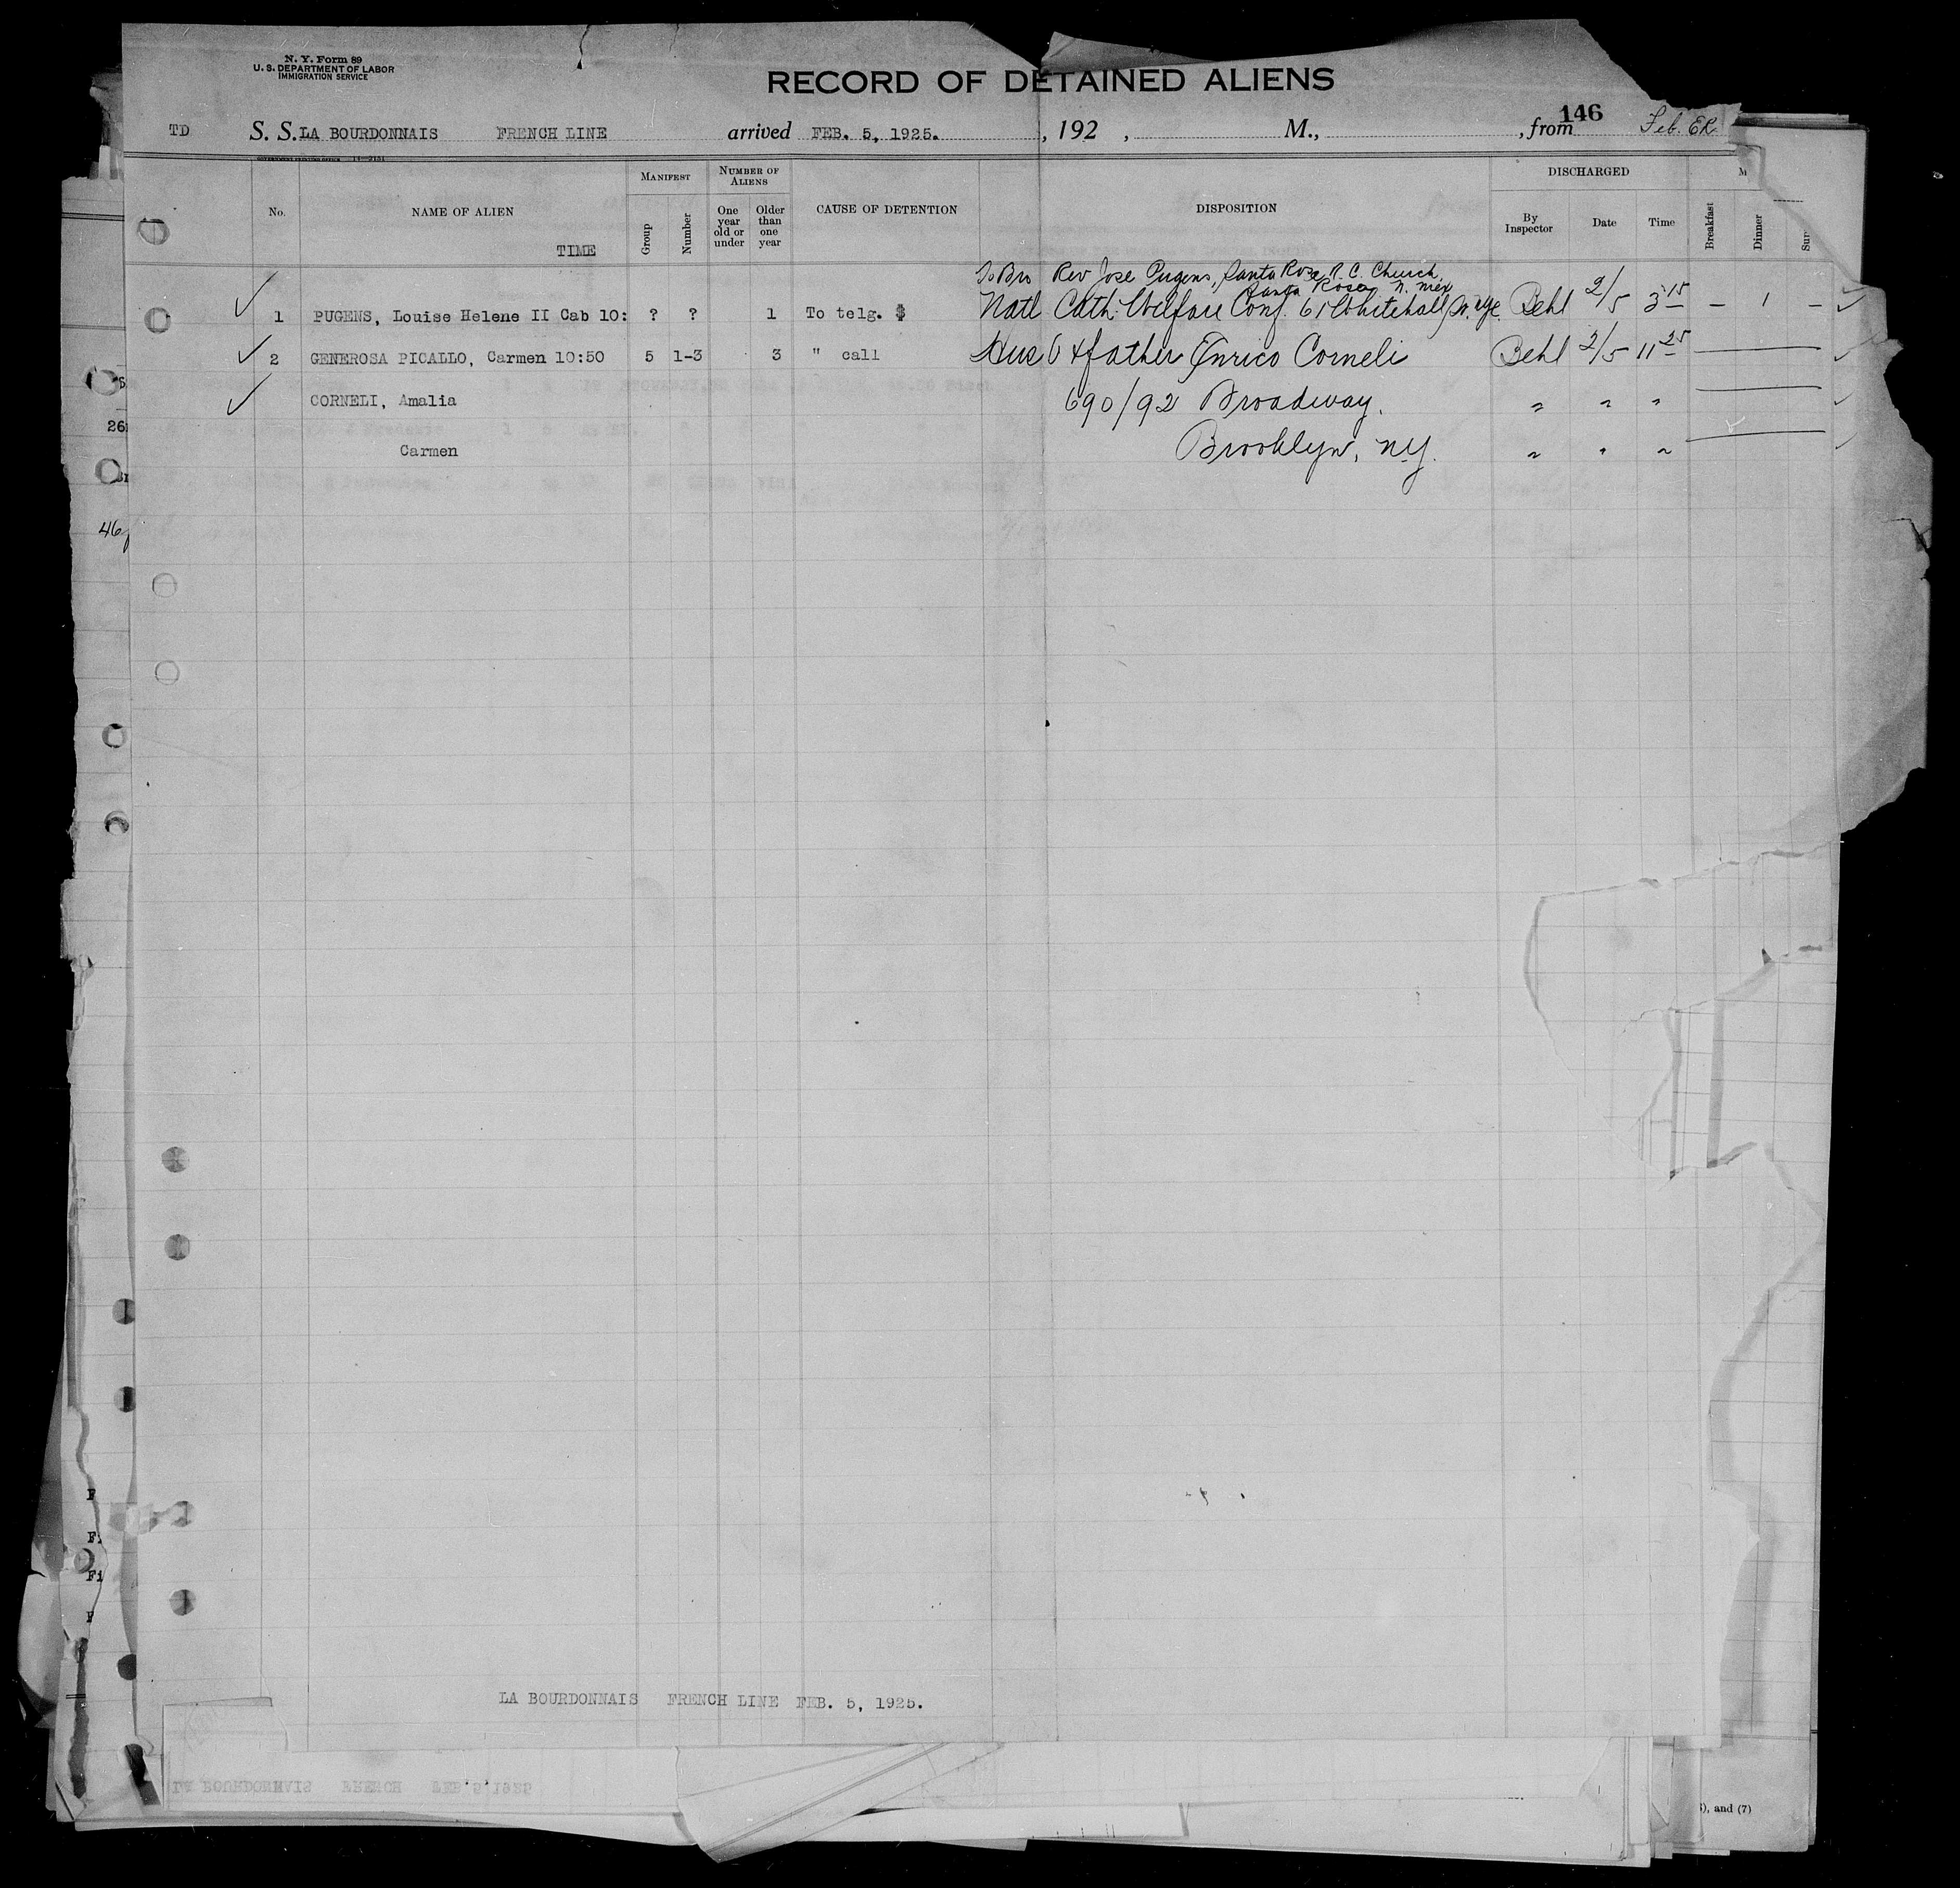 N. Y. Form 89
U. S. DEPARTMENT OF LABOR
IMMIGRATION SERVICE
RECORD OF DETAINED ALIENS
146
TD S. S. LA BOURDONNAIS FRENCH LINE arrived FEB. 5, 1925. , 192 , M., , from Feb. ER
MANIFEST NUMBER OF ALIENS DISCHARGED M
No. NAME OF ALIEN Group Number One year old or under Older than one year CAUSE OF DETENTION DISPOSITION By Inspector Date Time Breakfast Dinner
TIME
To Bro Rev Jose Pugens, Santa Rosa R. C. Church,
Santa Rosa, N. Mex
1 PUGENS, Louise Helene II Cab 10: ? ? 1 To telg. $ Natl Cath. Welfare Conf. 61 Whitehall, N. Y. Behl 2/5 3 15 – 1 –
2 GENEROSA PICALLO, Carmen 10:50 5 1-3 3 " call Hus & father Enrico Corneli Behl 2/5 11 25
CORNELI, Amalia 690/92 Broadway, " " "
26
Carmen Brooklyn, N.Y. " " "
46
LA BOURDONNAIS FRENCH LINE FEB. 5, 1925.
), and (7)